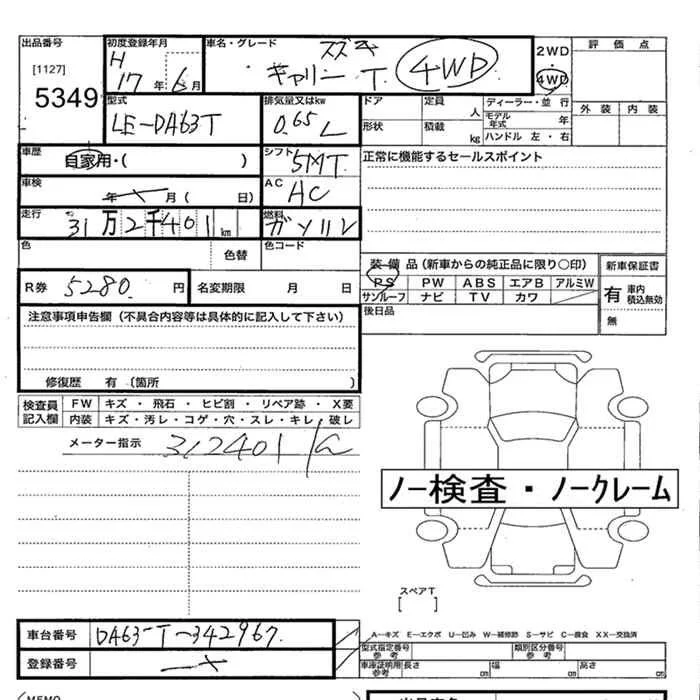 出品番号 初度登録年月 車名・グレード スズキ 2WD 評価点
[1127] H キャリー T 4WD 4WD
5349 17年 6月 外装 内装
型式 排気量又はkw ドア 定員 人 ディーラー・並行
LE-DA63T 0.65 L モデル年式 年
形状 積載 kg ハンドル 左・右
車歴 自家用・( ) シフト 5MT 正常に機能するセールスポイント
車検 年 月( 日) AC AC
走行 31万2千401km 燃料 ガソリン
色 色替 色コード
装備品(新車からの純正品に限り○印) 新車保証書
R券 5280. 円 名変期限 月 日 PS PW ABS エアB アルミW 有 車内積込無効
サンルーフ ナビ TV カワ
注意事項申告欄(不具合内容等は具体的に記入して下さい) 後日品 無
修復歴 有〔箇所 〕
検査員記入欄 FW キズ・飛石・ヒビ割・リペア跡・X要
内装 キズ・汚レ・コゲ・穴・スレ・キレ・破レ
メーター指示 312401
ノー検査・ノークレーム
スペアT
[ ]
車台番号 DA63T-342967
A―キズ E―エクボ U―凹み W―補修跡 S―サビ C―腐食 XX―交換済
登録番号
型式指定番号参考 類別区分番号参考
車庫証明用参考 長さ cm 幅 cm 高さ cm